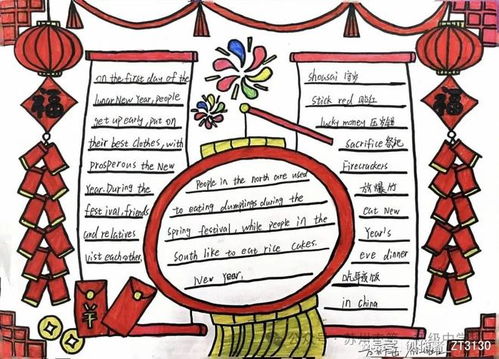 on the first day of the
lunar New Year, people
get up early, put on
their best clothes, with
prosperous the New
Year. During the
festival, friends
and relatives
vist each other.
People in the north are used
to eating dumplings during the
spring festival, while people in the
South like to eat rice cakes.
New Year,
shousai 守岁
stick red 贴红
lucky money 压岁钱
sacrifice 祭祀
Firecrackers
放爆竹
eat New
Year's
eve dinner
吃年夜饭
in China
福
福
羊
ZT3130